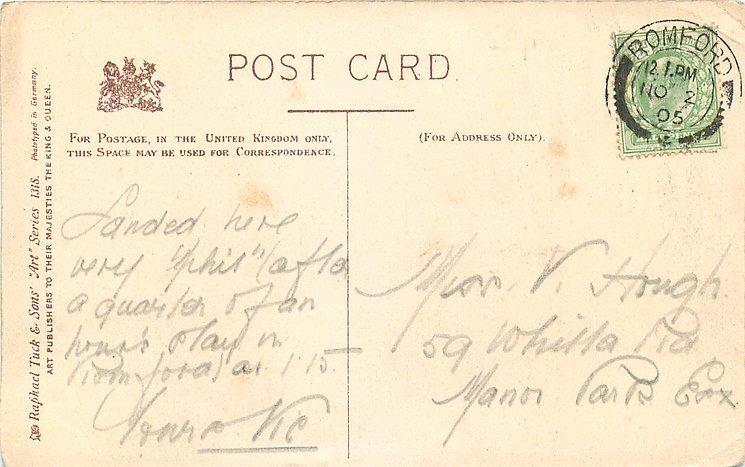 POST CARD
FOR POSTAGE, IN THE UNITED KINGDOM ONLY,
THIS SPACE MAY BE USED FOR CORRESPONDENCE.
(FOR ADDRESS ONLY).
ROMFORD
12.1.PM
NO 2
05
Raphael Tuck & Sons' "Art" Series 1318. Phototyped in Germany.
ART PUBLISHERS TO THEIR MAJESTIES THE KING & QUEEN.
Landed here
very "phit" (after
a quarter of an
hour's stay in
Romford) at 1.15
Yours Vic
Miss. V. Hough.
59 Whitta Rd
Manor Park Essx